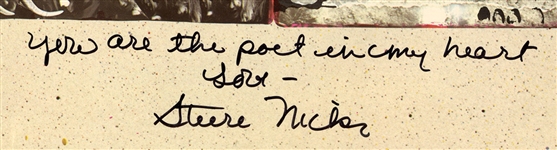 you are the poet in my heart
Love -
Stevie Nicks